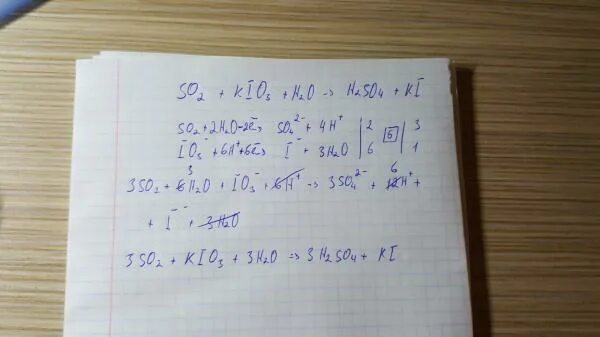 SO₂ + KIO₃ + H₂O → H₂SO₄ + KI
SO₂ + 2H₂O - 2ē → SO₄²⁻ + 4H⁺ | 2 | 6 | 3
IO₃⁻ + 6H⁺ + 6ē → I⁻ + 3H₂O | 6 | 1
3SO₂ + 6̶ 3 H₂O + IO₃⁻ + 6̶H̶⁺̶ → 3SO₄²⁻ + 1̶2̶ 6 H⁺ +
+ I⁻ + 3̶H̶₂̶O̶
3SO₂ + KIO₃ + 3H₂O → 3H₂SO₄ + KI